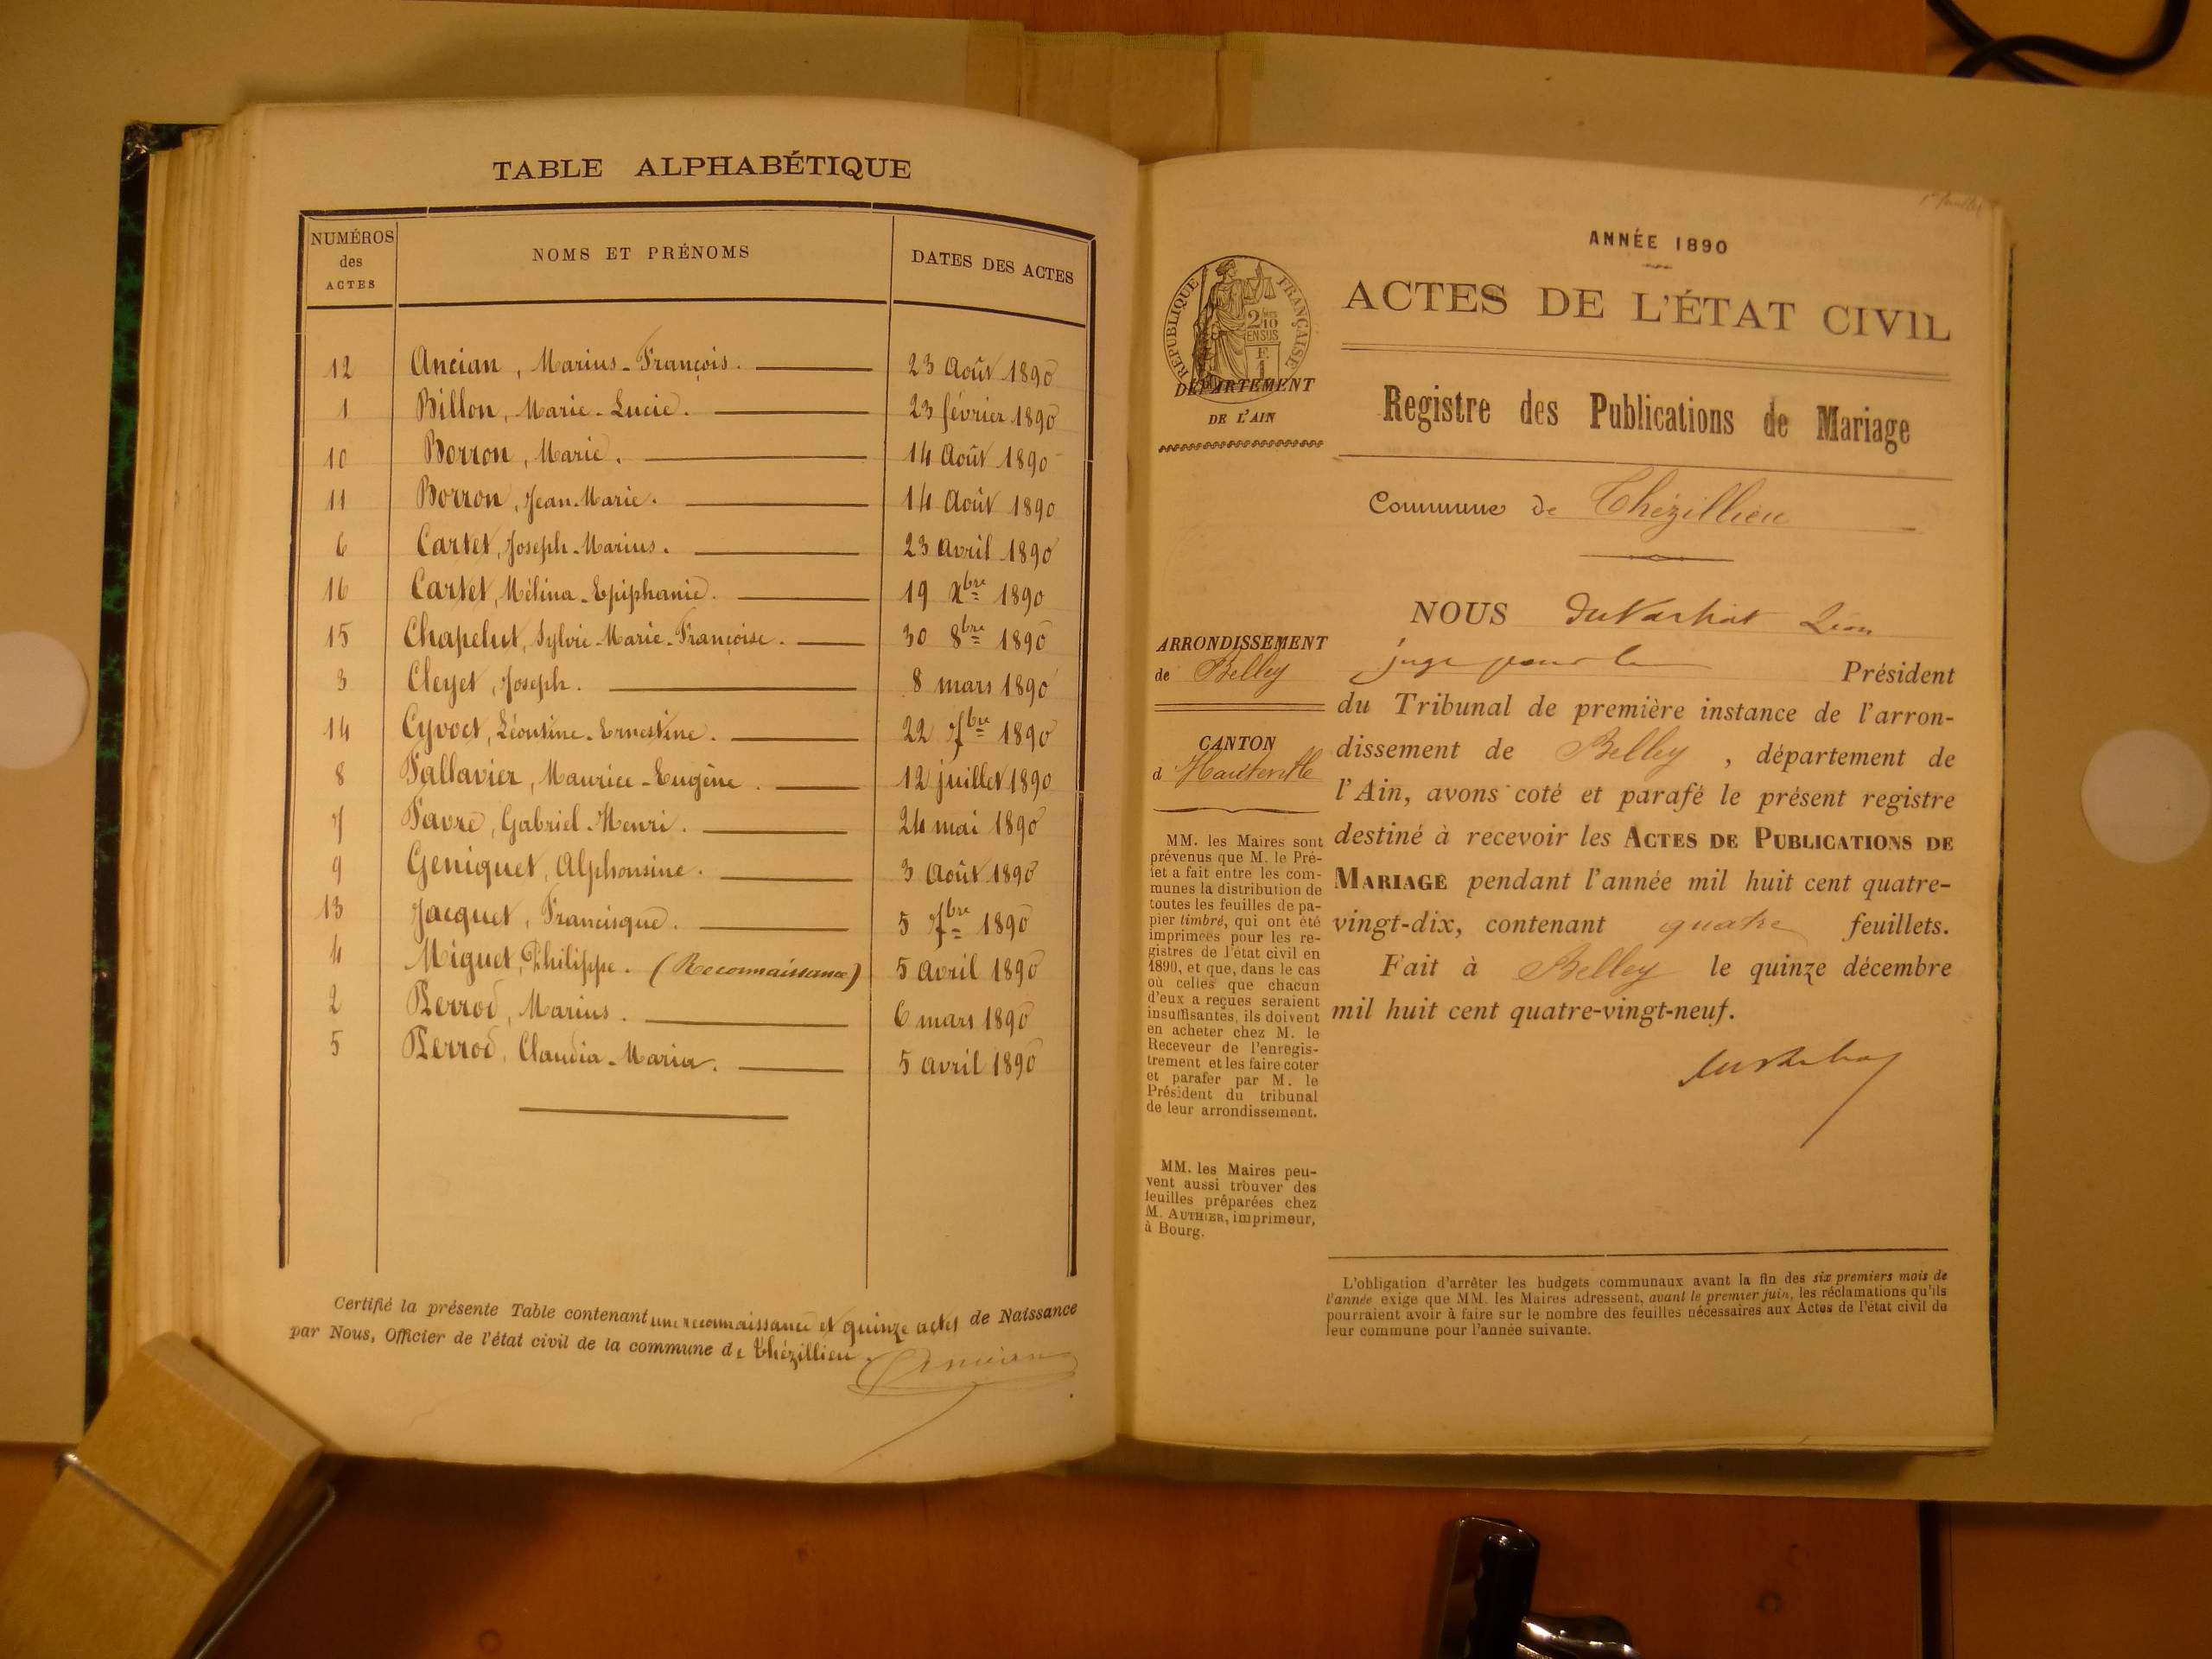 TABLE ALPHABÉTIQUE
NUMÉROS des ACTES
NOMS ET PRÉNOMS
DATES DES ACTES
12 Ancian, Marius-François. 23 Août 1890
1 Billon, Marie-Lucie. 23 février 1890
10 Borron, Marie. 14 Août 1890
11 Borron, Jean-Marie. 14 Août 1890
6 Cartet, Joseph-Marius. 23 avril 1890
16 Cartet, Mélina-Epiphanie. 19 Xbre 1890
15 Chapelut, Sylvie-Marie-Françoise. 30 8bre 1890
3 Cleyet, Joseph. 8 mars 1890
14 Cyvoct, Léontine-Ernestine. 22 7bre 1890
8 Fallavier, Maurice-Eugène. 12 juillet 1890
7 Favre, Gabriel-Henri. 24 mai 1890
9 Geniquet, Alphonsine. 3 Août 1890
13 Jacquet, Francisque. 5 7bre 1890
4 Miguet, Philippe. (Reconnaissance) 5 avril 1890
2 Perrod, Marius. 6 mars 1890
5 Perrod, Claudia-Maria. 5 avril 1890
Certifié la présente Table contenant une reconnaissance et quinze actes de Naissance
par Nous, Officier de l'état civil de la commune de Thézillieu.
Ancian
ANNÉE 1890
ACTES DE L'ÉTAT CIVIL
REPUBLIQUE FRANÇAISE
2/10 EN SUS
F. 1
DÉPARTEMENT
DE L'AIN
Registre des Publications de Mariage
Commune de Thézillieu
ARRONDISSEMENT
de Belley
CANTON
d Hauteville
MM. les Maires sont
prévenus que M. le Pré-
fet a fait entre les com-
munes la distribution de
toutes les feuilles de pa-
pier timbré, qui ont été
imprimées pour les re-
gistres de l'état civil en
1890, et que, dans le cas
où celles que chacun
d'eux a reçues seraient
insuffisantes, ils doivent
en acheter chez M. le
Receveur de l'enregis-
trement et les faire coter
et parafer par M. le
Président du tribunal
de leur arrondissement.
MM. les Maires peu-
vent aussi trouver des
feuilles préparées chez
M. AUTHIER, imprimeur,
à Bourg.
NOUS Léon
juge pour le Président
du Tribunal de première instance de l'arron-
dissement de Belley, département de
l'Ain, avons coté et parafé le présent registre
destiné à recevoir les ACTES DE PUBLICATIONS DE
MARIAGE pendant l'année mil huit cent quatre-
vingt-dix, contenant quatre feuillets.
Fait à Belley le quinze décembre
mil huit cent quatre-vingt-neuf.
L'obligation d'arrêter les budgets communaux avant la fin des six premiers mois de
l'année exige que MM. les Maires adressent, avant le premier juin, les réclamations qu'ils
pourraient avoir à faire sur le nombre des feuilles nécessaires aux Actes de l'état civil de
leur commune pour l'année suivante.